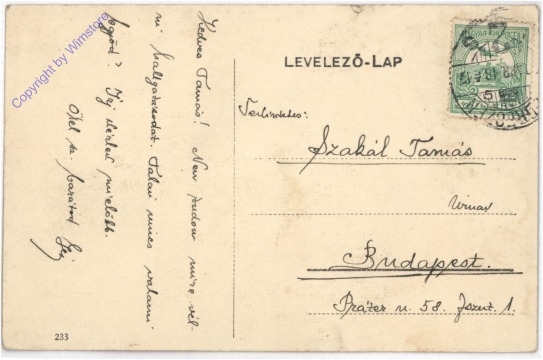 Kedves Tamás! Nem tudom mire vél-
ni hallgatásodat. Talán nincs valami
Így írtad mielőbb.
Ölel barátod
233
LEVELEZŐ-LAP
Tekintetes:
Szakál Tamás
úrnak
Budapest.
Práter u. 58. I. 1.
Copyright by Wimstore